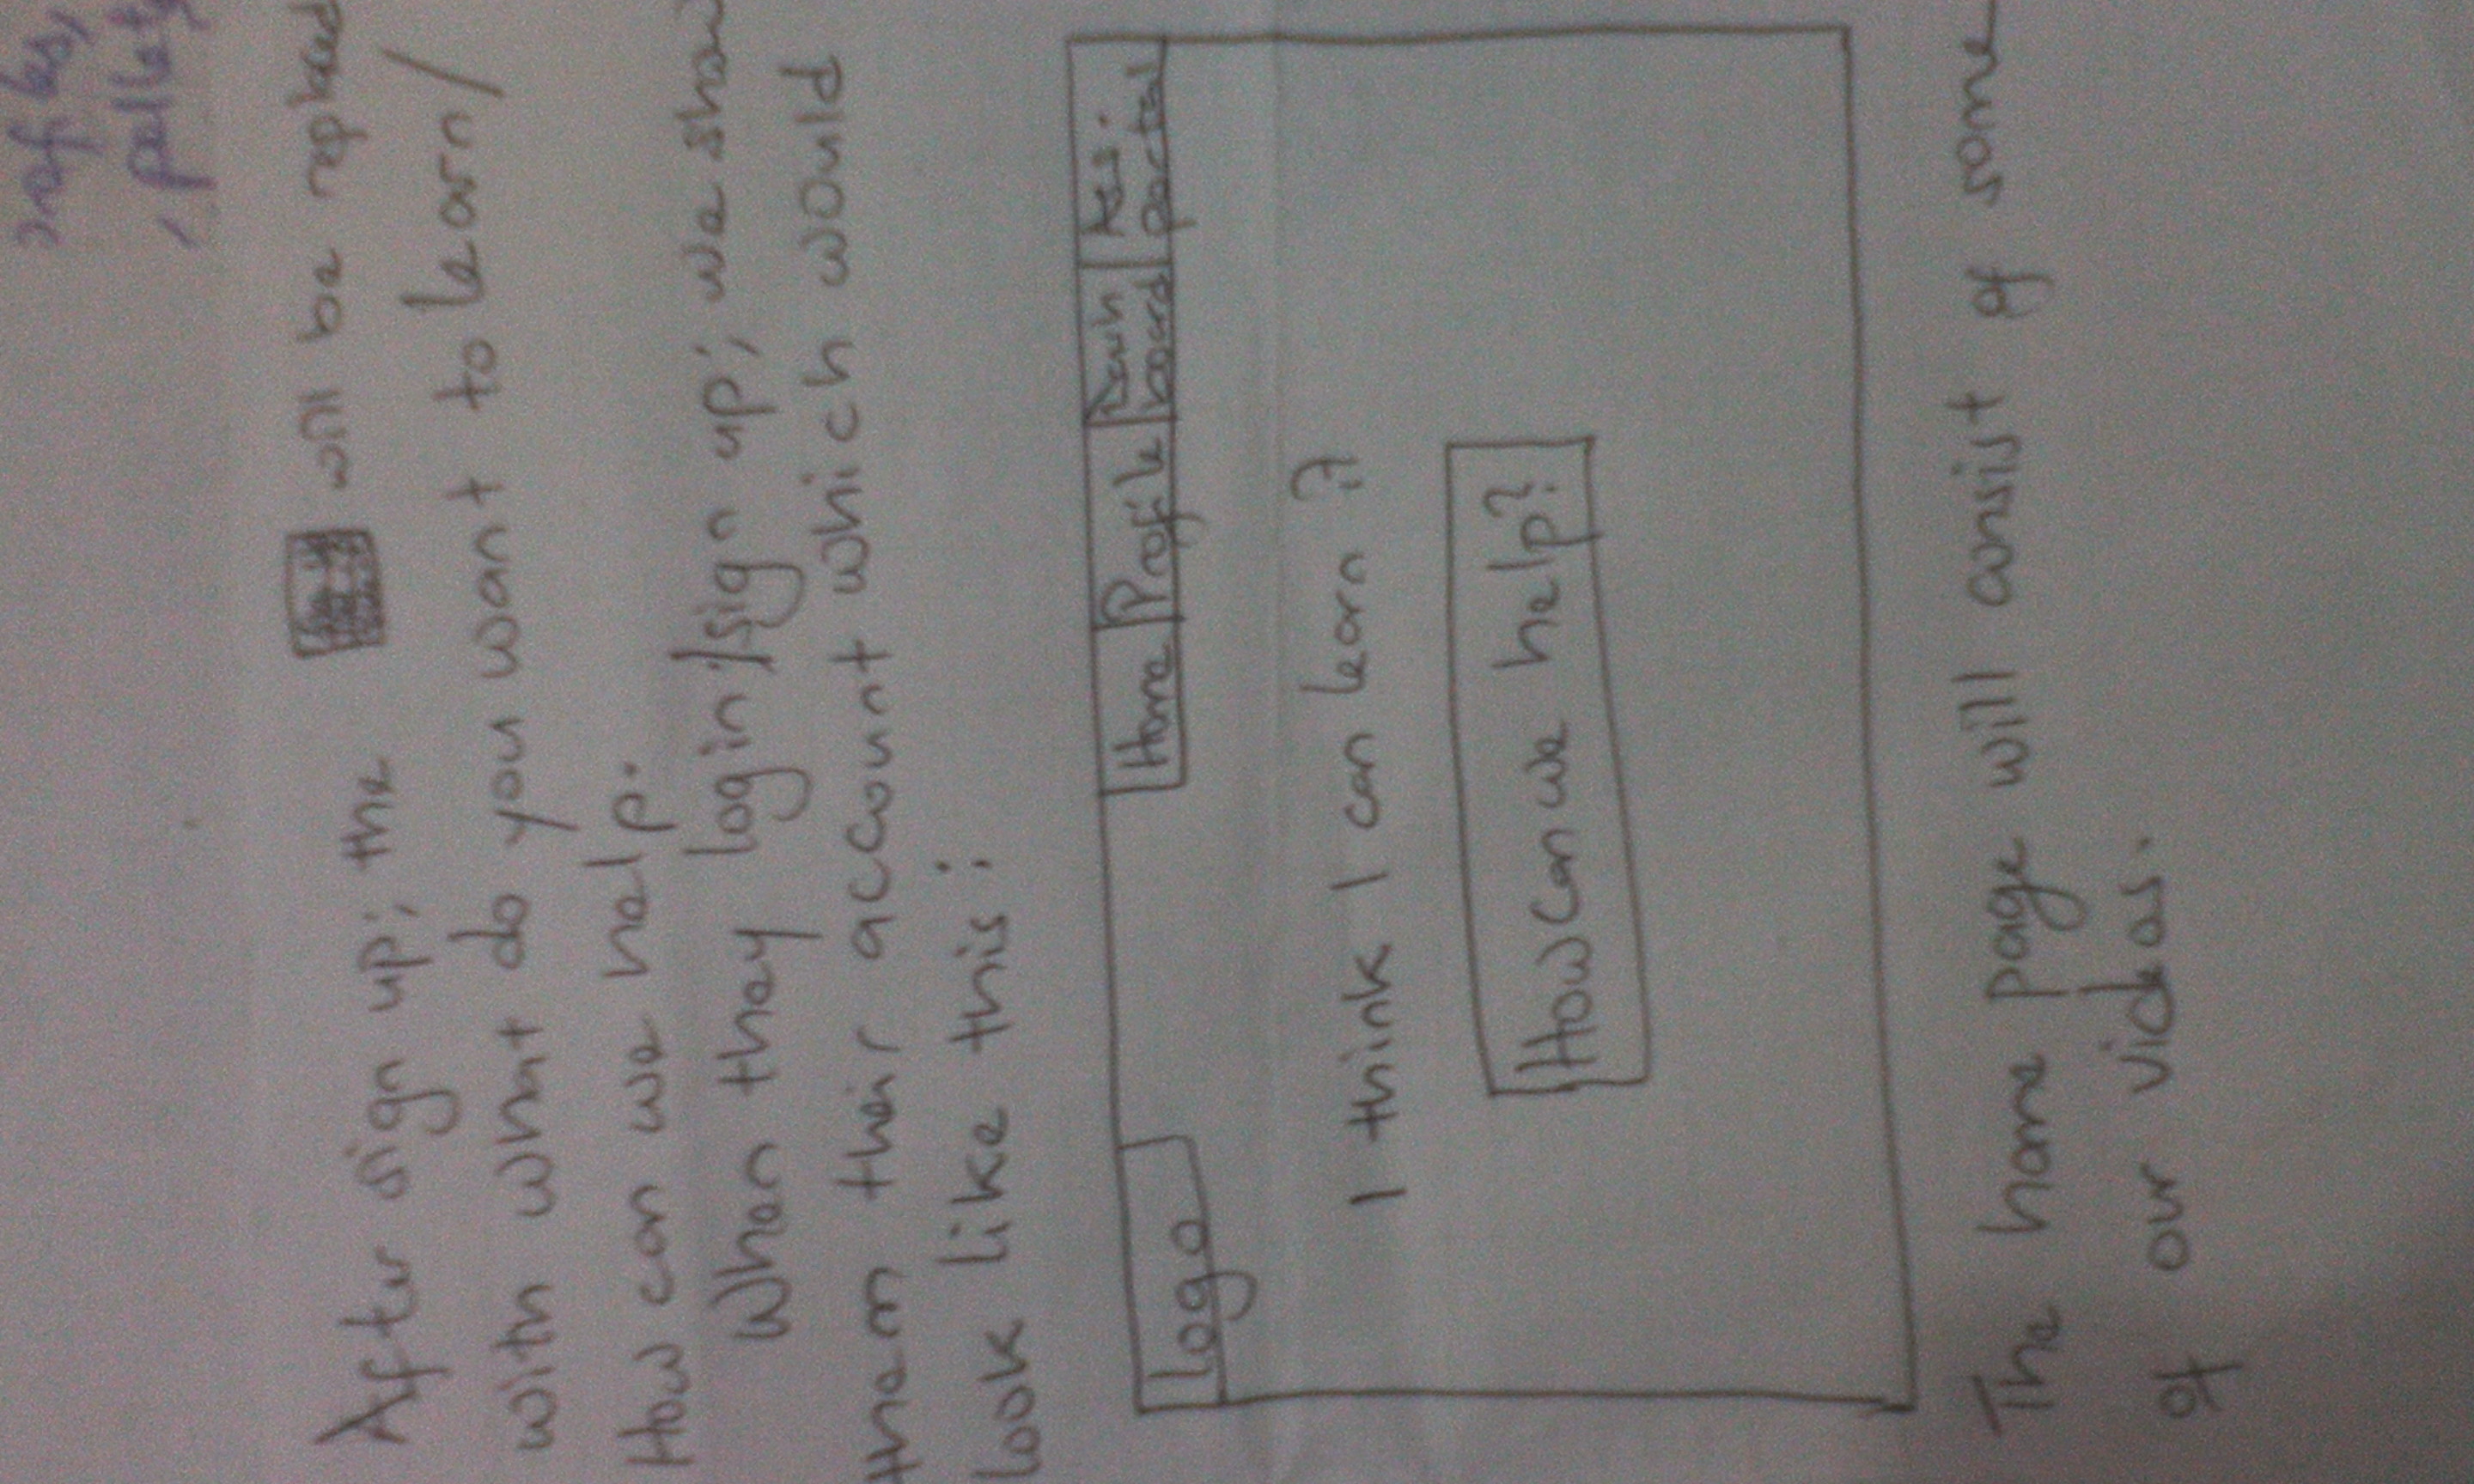 , pallet
After sign up; the will be replaced
with what do you want to learn/
How can we help.
When they login/sign up; we show
them their account which would
look like this:
Logo Home Profile Dash board Ass. portal
I think I can learn it
How Can we help?
The home page will consist of some
of our videos.